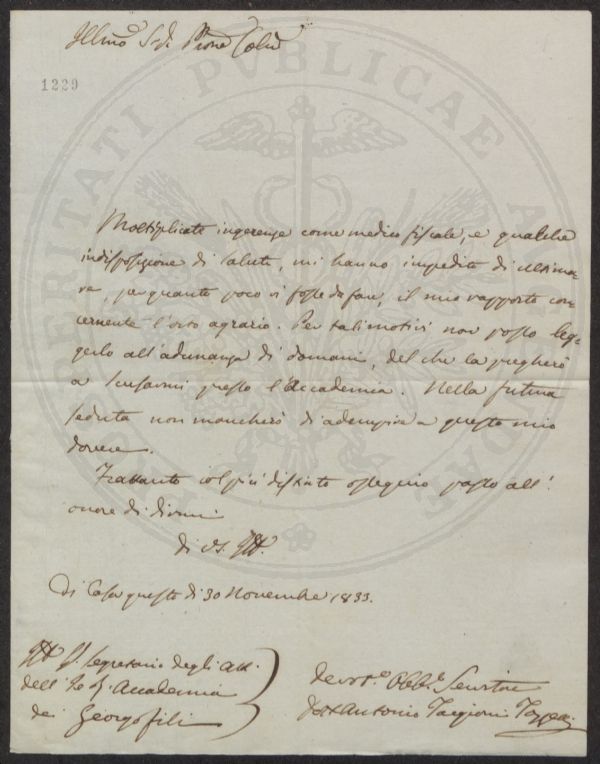 Illmo Sig. Pne Colmo
1229
Moltiplicate ingerenze come medico fiscale, e qualche
indisposizione di salute, mi hanno impedito di ultima-
re, per quanto poco vi fosse da fare, il mio rapporto con-
cernente l'orto agrario. Per tali motivi non posso leg-
gerlo all'adunanza di domani, del che la pregherò
a scusarmi presso l'Accademia. Nella futura
seduta non mancherò di adempire a questo mio
dovere.
Frattanto col più distinto ossequio passo all'
onore di dirmi
di VS. Ill.
Di Casa questo dì 30 Novembre 1833.
Segretario degli Atti
dell' I. e R. Accademia
dei Georgofili
Devot.o Obb.o Servitore
Dott. Antonio Targioni Tozzetti
PROSPERITATI PUBLICAE AUGENDAE